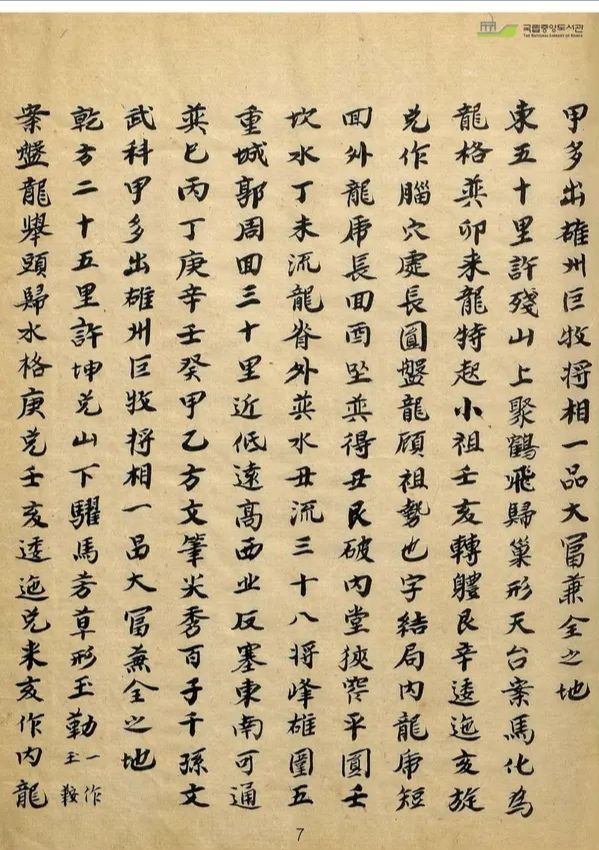 국립중앙도서관
THE NATIONAL LIBRARY OF KOREA
甲多出雄州巨牧將相一品大富兼全之地
東五十里許殘山上聚鶴飛歸巢形天台案馬化為
龍格巽卯来龍特起小祖壬亥轉軆艮辛逶迤亥旋
兌作腦穴處長圓盤龍顧祖勢也字結局內龍虎短
回外龍虎長回酉坐巽得丑艮破內堂狹窄平圓壬
坎水丁未流龍脊外巽水丑流三十八將峰雄圍五
重城郭周回三十里近低遠高西北反塞東南可通
巽巳丙丁庚辛壬癸甲乙方文筆尖秀百子千孫文
武科甲多出雄州巨牧將相一品大富兼全之地
乾方二十五里許坤兌山下驅馬芳草形玉勒一作玉鞍
案盤龍舉頭歸水格庚兌壬亥逶迤兌来亥作內龍
7